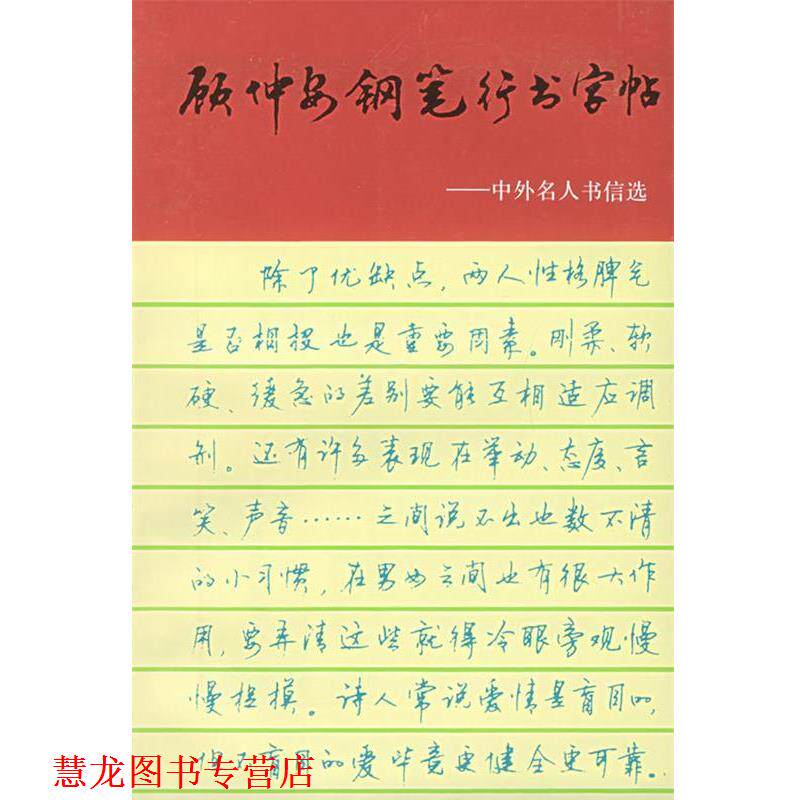 顾仲安钢笔行书字帖
——中外名人书信选
除了优缺点,两人性格脾气
是否相投也是重要因素。刚柔、软
硬、缓急的差别要能互相适应调
剂。还有许多表现在举动、态度、言
笑、声音……之间说不出也数不清
的小习惯,在男女之间也有很大作
用,要弄清这些就得冷眼旁观慢
慢捉摸。诗人常说爱情是盲目的,
但不盲目的爱毕竟更健全更可靠。
慧龙图书专营店